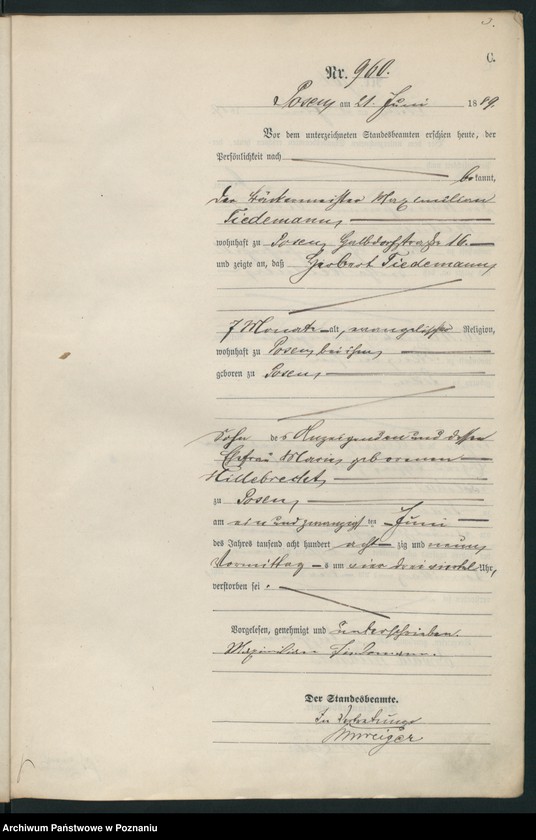 C.
Nr. 960.
Posen am 21. Juni 1889.
Vor dem unterzeichneten Standesbeamten erschien heute, der
Persönlichkeit nach
bekannt,
der Bäckermeister Maximilian
Tiedemann,
wohnhaft zu Posen, Halbdorfstraße 16.
und zeigte an, daß Herbert Tiedemann,
7 Monate alt, evangelischer Religion,
wohnhaft zu Posen, bei ihm,
geboren zu Posen,
Sohn des Anzeigenden und dessen
Ehefrau Marie, geborenen
Hildebrecht,
zu Posen,
am ein und zwanzigsten Juni
des Jahres tausend acht hundert acht zig und neun,
Vormittags um ein drei viertel Uhr,
verstorben sei.
Vorgelesen, genehmigt und unterschrieben.
Maximilian Tiedemann.
Der Standesbeamte.
In Vertretung
Archiwum Państwowe w Poznaniu